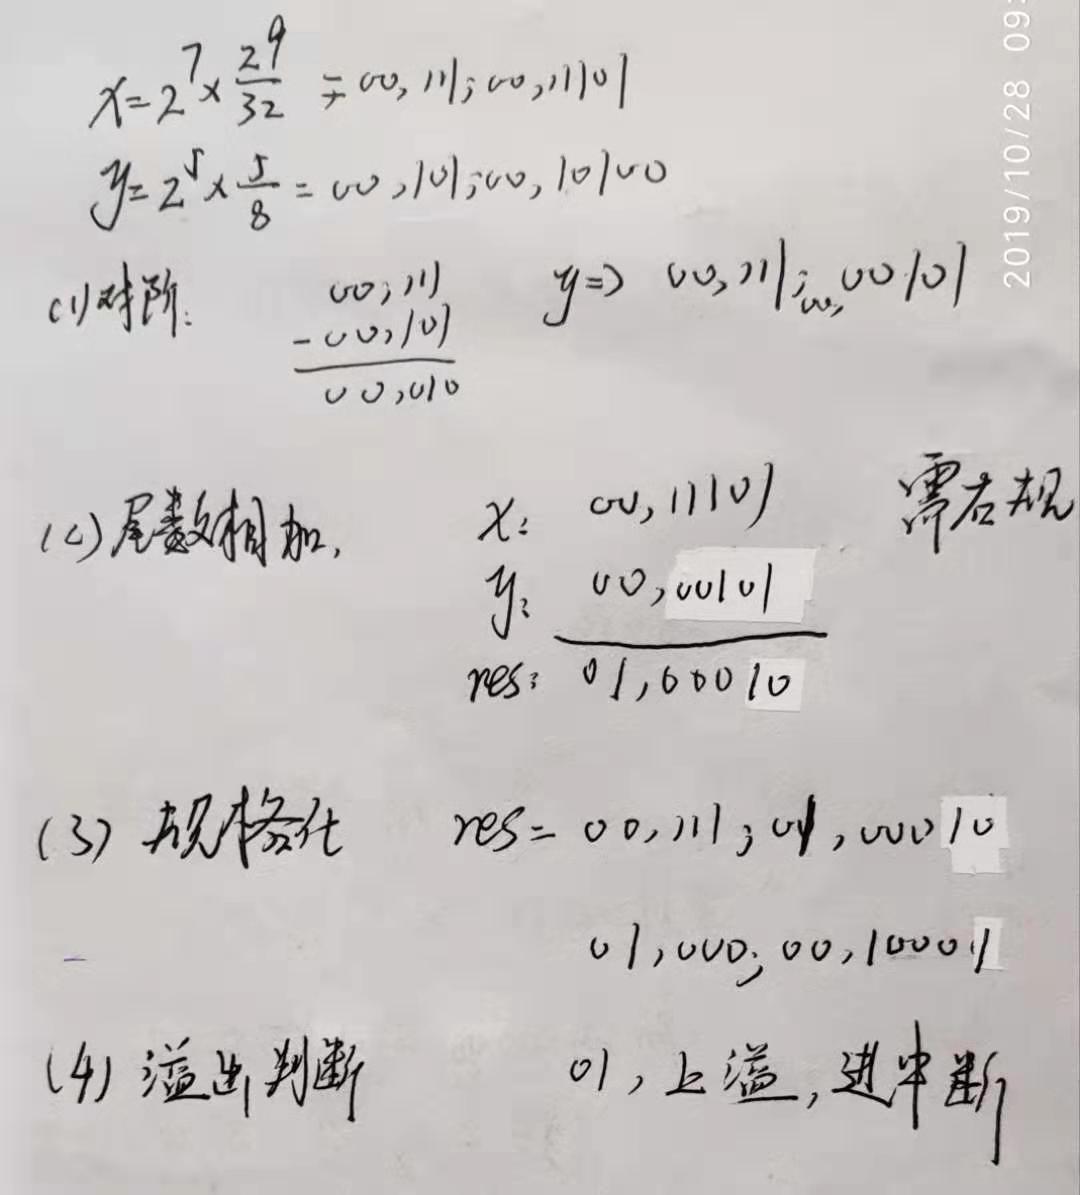 x=2^7×29/32 = 00,111;00,11101
y=2^5×5/8 = 00,101;00,10100
(1)对阶: 00,111 y=> 00,111;00,00101
-00,101
00,010
(2)尾数相加, x: 00,11101 需右规
y: 00,00101
res: 01,00010
(3) 规格化 res= 00,111;01,00010
01,000;00,10001
(4) 溢出判断 01,上溢,进中断
2019/10/28 09: